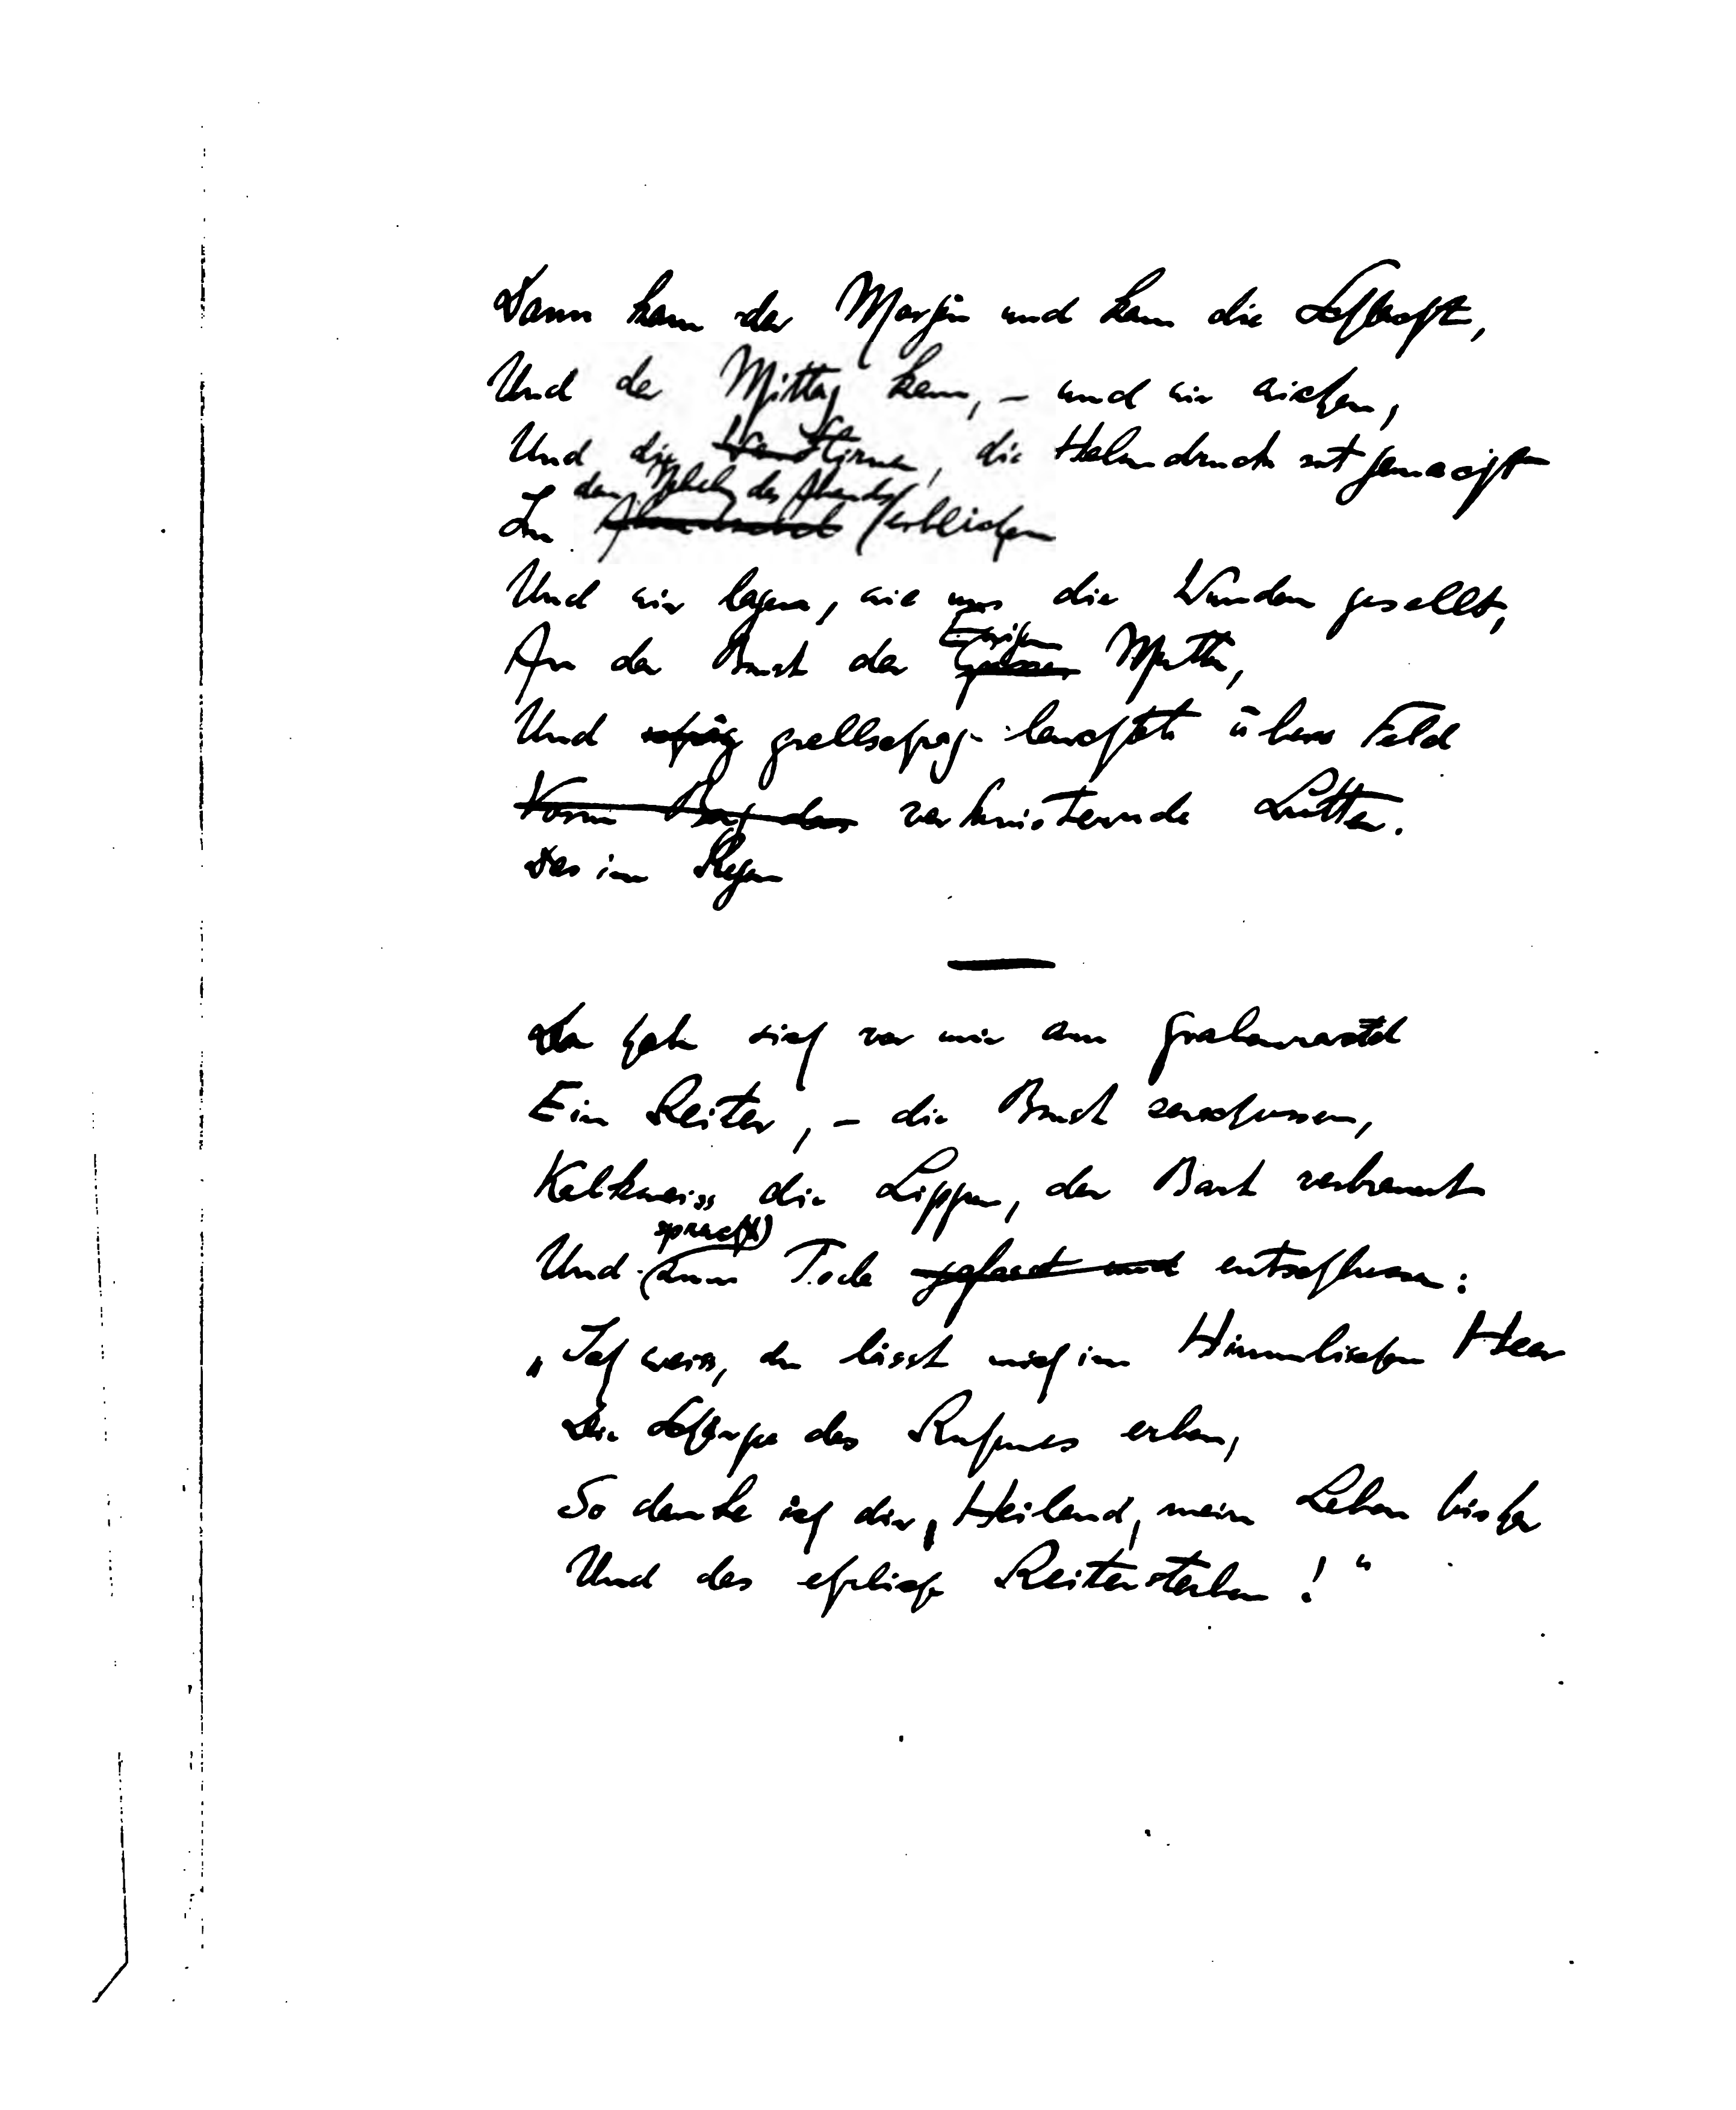 Dann kam der Morgen und kam die Schlacht,
Und der Mittag kam, – und wir wichen,
Und die Stirnen, die Helmdruck rot gemacht
den Nebeln des Abends
In Abendnebel erblichen
Und wir lagen, wie uns die Wunden gesellt,
Ewigen
An der Brust der Grossen Mutter,
Und grellschräg leuchtete übers Feld
Vorm Berg das verknisternde Lutter.
Das im Regen
Da hob sich vor mir am Grabenrand
Ein Reiter, – die Brust zerschossen,
Kalkweiss die Lippen, der Bart verbrannt
sprach
Und zum Tode gefasst und entschlossen:
„Ich weiss, du lässt mich im Himmlischen Heer
Die Schärpe des Ruhmes erben,
So danke ich dir, Heiland, mein Leben bisher
Und das ehrliche Reitersterben!“